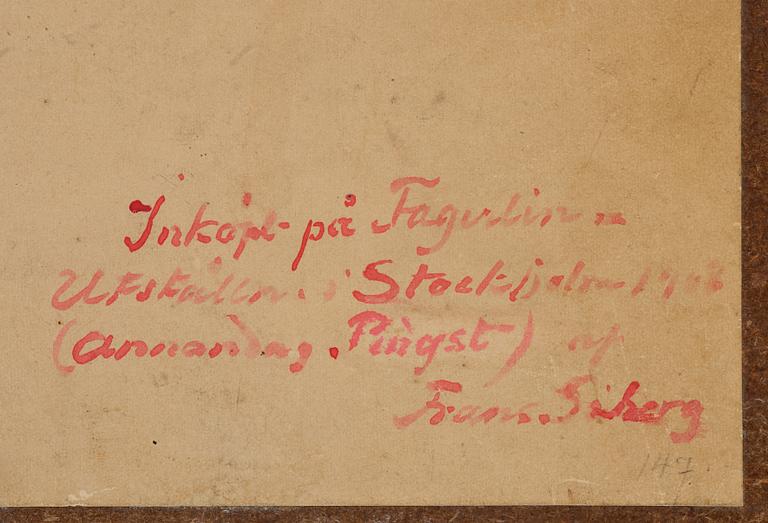 Inköpt på Fagerlin -
Utställn. i Stockholm 1908
(Annandag Pingst) af
Frans Siberg
147